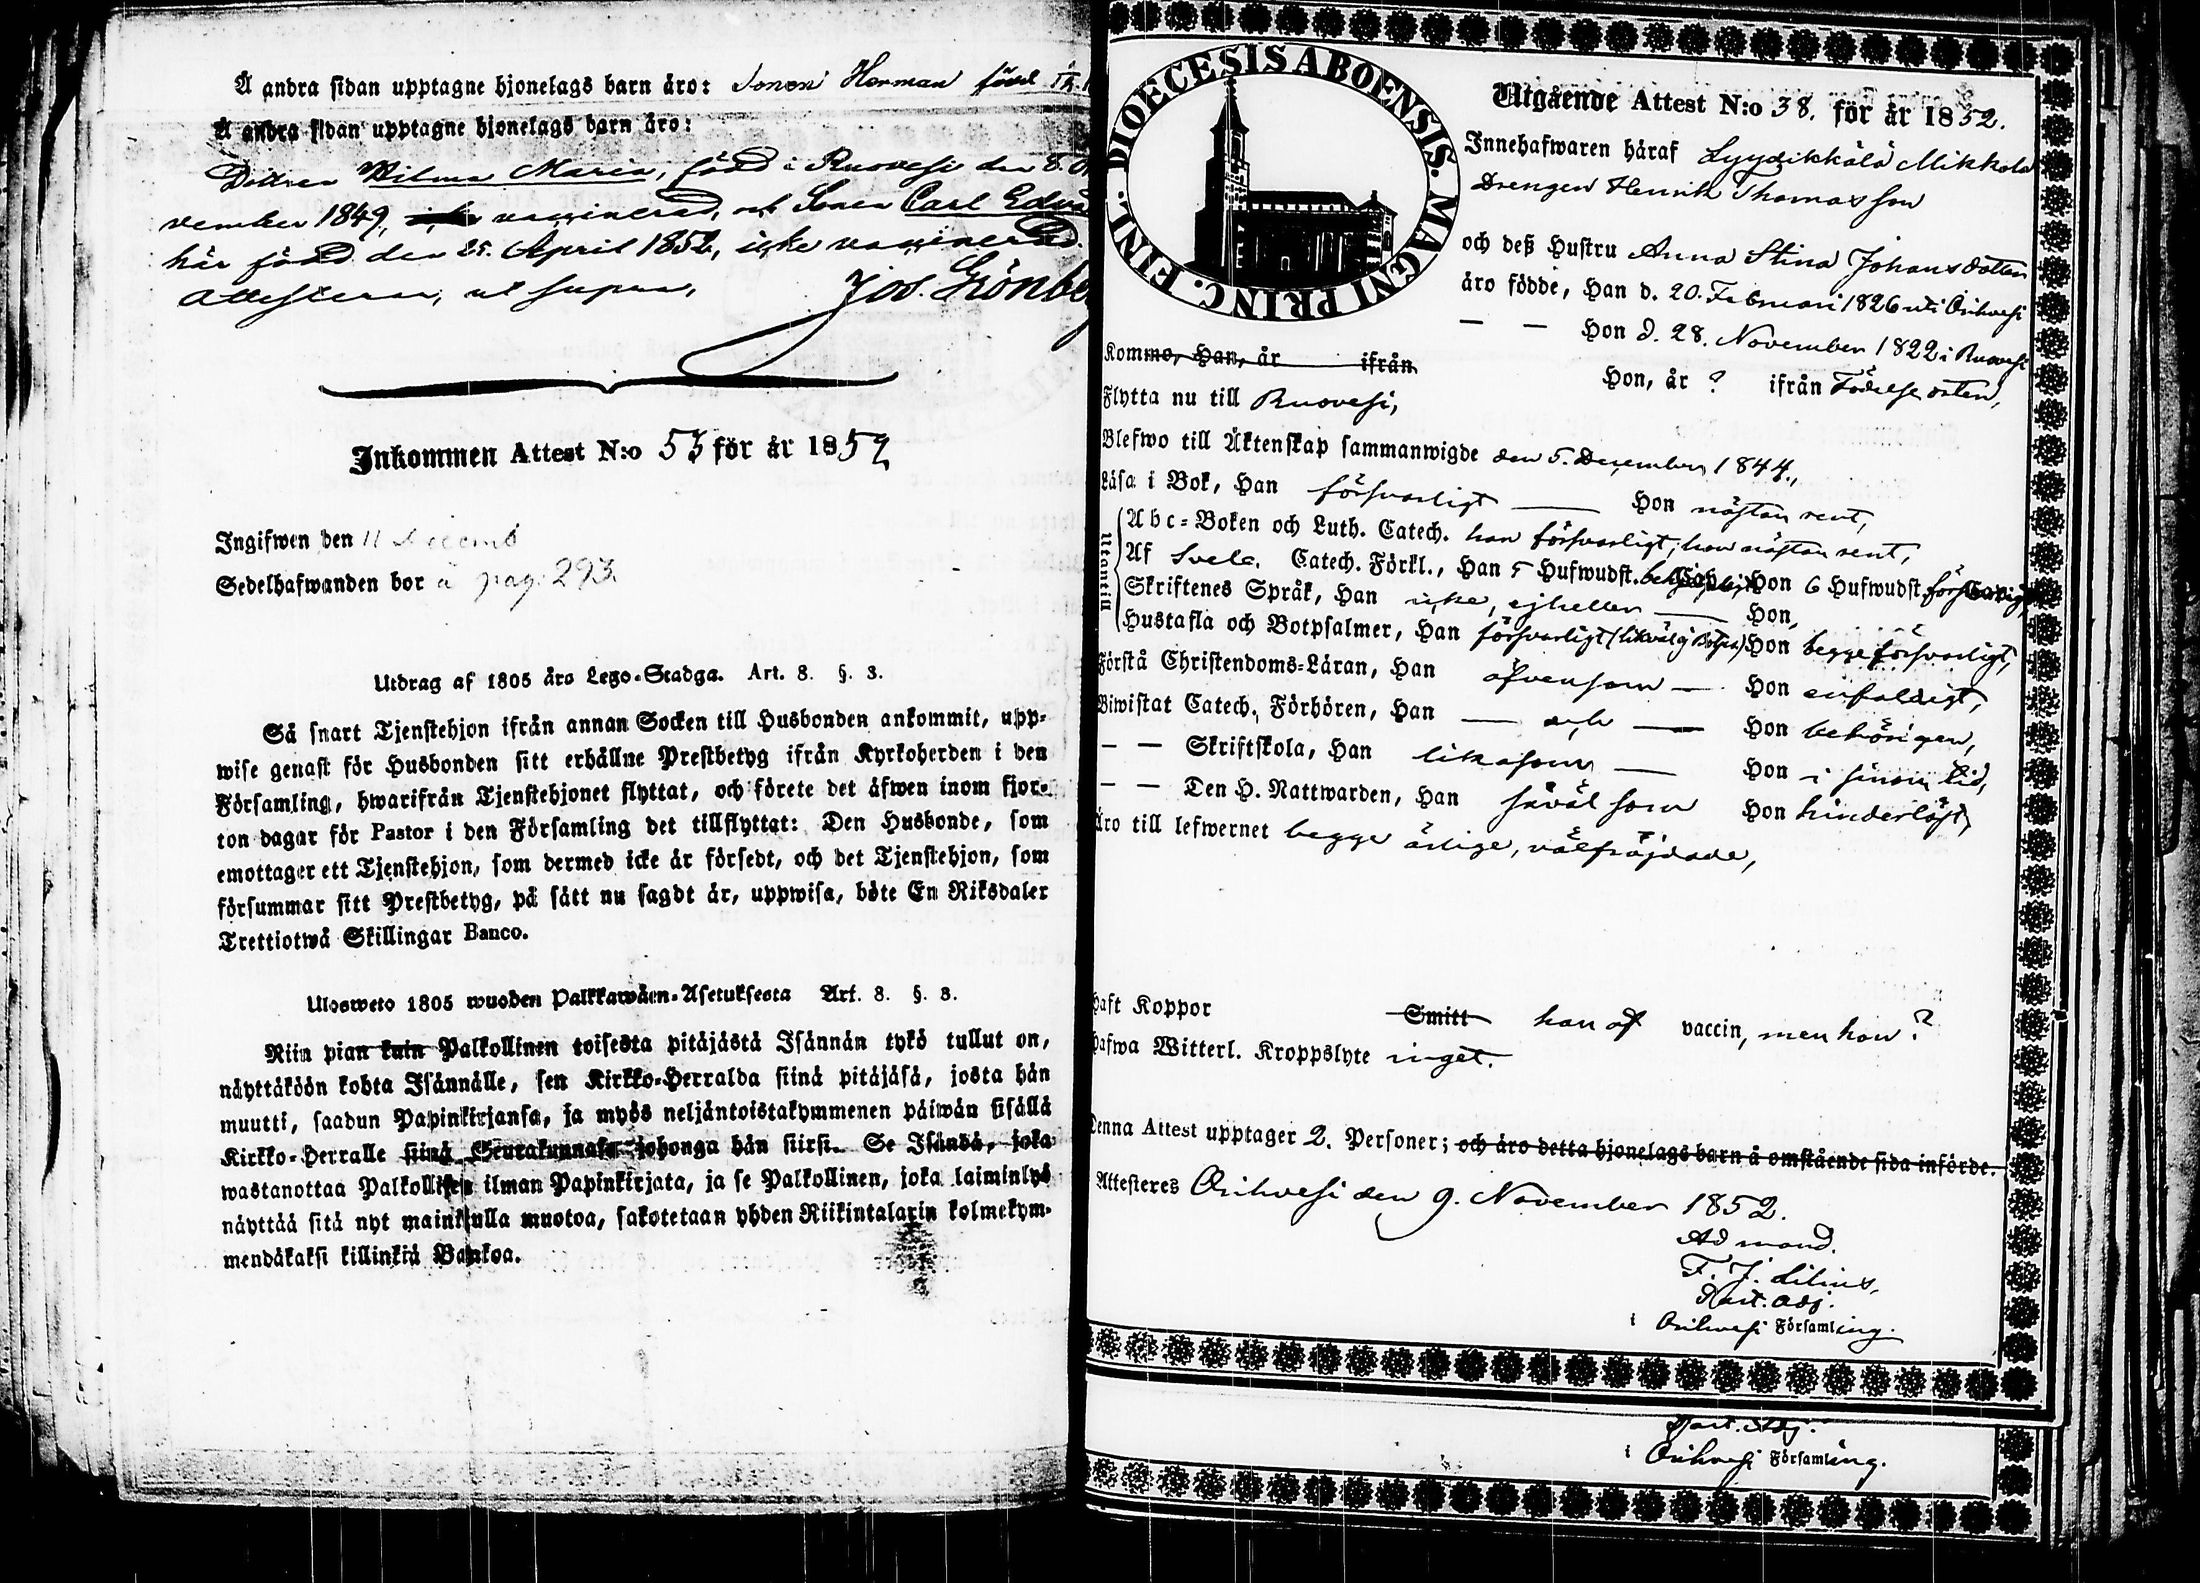 Å andra sidan upptagne hjonelags barn äro: Sonen Herman född
Å andra sidan upptagne hjonelags barn äro:
Dottren Wilma Maria, född i Ruovesi den 8. No
vember 1849, vaccinerad, och Sonen Carl Edva
här född den 25. April 1852, icke vaccinerad.
Attesteras, ut supra,
Jos. Grönbe
Inkommen Attest N:o 53 för år 1852
Ingifwen den 11 Decemb
Sedelhafwanden bor å pag. 293.
Utdrag af 1805 års Lego-Stadga. Art. 8. §. 3.
Så snart Tjenstehjon ifrån annan Socken till Husbonden ankommit, upp-
wise genast för Husbonden sitt erhållne Prestbetyg ifrån Kyrkoherden i den
Församling, hwarifrån Tjenstehjonet flyttat, och förete det äfwen inom fjor-
ton dagar för Pastor i den Församling det tillflyttat: Den Husbonde, som
emottager ett Tjenstehjon, som dermed icke är försedt, och det Tjenstehjon, som
försummar sitt Prestbetyg, på sätt nu sagdt är, uppwisa, böte En Riksdaler
Trettiotwå Skillingar Banco.
Ulosweto 1805 wuoden Palkkawäen-Asetuksesta Art. 8. §. 3.
Niin pian kuin Palkollinen toisesta pitäjästä Isännän tykö tullut on,
näyttäköön kohta Isännälle, sen Kirkko-Herralda siinä pitäjäsä, josta hän
muutti, saadun Papinkirjansa, ja myös neljäntoistakymmenen päiwän sisällä
Kirkko-Herralle siinä Seurakunnasa johonga hän siirsi. Se Isändä, joka
wastanottaa Palkollisen ilman Papinkirjata, ja se Palkollinen, joka laiminlyö
näyttää sitä nyt mainitulla muotoa, sakotetaan yhden Riikintalarin kolmekym-
mendäkaksi killinkiä Bankoa.
DIOECESIS ABOENSIS. MAGNI PRINC. FINL.
Utgående Attest N:o 38. för år 1852.
Innehafwaren häraf Lyydikkälä Mikkola
Drengen Henrik Thomasson
och deß Hustru Anna Stina Johansdotter
äro födde, Han d. 20. Februari 1826 uti Orihvesi
— — Hon d. 28. November 1822 i Ruovesi
Kommo, Han, år ifrån Hon, år ? ifrån Födelseorten,
Flytta nu till Ruovesi,
Blefwo till Äktenskap sammanwigde den 5. December 1844.,
Läsa i Bok, Han försvarligt — Hon nästan rent,
Utantill
Abc-Boken och Luth. Catech. han försvarligt, hon nästan rent,
Af Svel. Catech. Förkl., Han 5 Hufwudst. Hon 6 Hufwudst.
Skriftenes Språk, Han icke, ejheller — Hon,
Hustafla och Botpsalmer, Han försvarligt Hon begge försvarligt,
Förstå Christendoms-Läran, Han äfvensom — Hon enfaldigt,
Biwistat Catech. Förhören, Han — och — Hon behörigen,
— — Skriftskola, Han likasom — Hon i sinom tid,
— — Den H. Nattwarden, Han såväl som Hon hinderlöst,
Äro till lefwernet begge ärlige, välfräjdade,
Haft Koppor Smitt han af vaccin, men hon ?
Hafwa Witterl. Kroppslyte inget.
Denna Attest upptager 2. Personer; och äro detta hjonelags barn å omstående sida införde.
Attesteres Orihvesi den 9. November 1852.
Ad mand.
F. J. Lilius,
Past. adj.
i Orihvesi Församling.
Past. Adj.
i Orihvesi Församling.